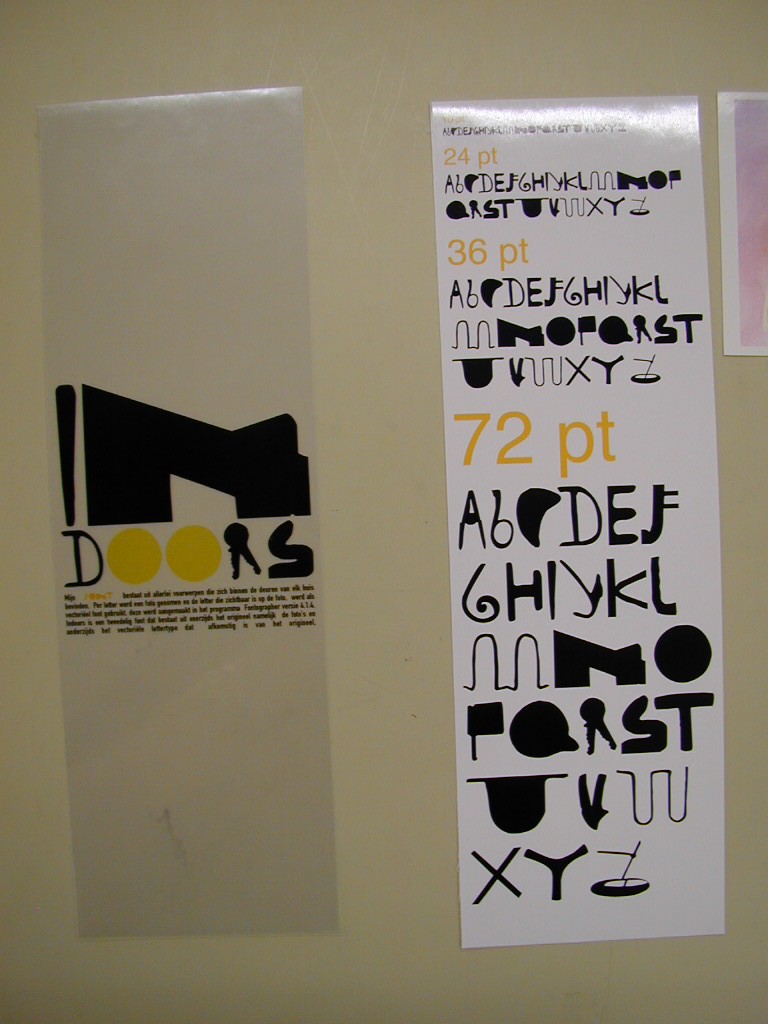 IN
DOORS
Mijn FONT bestaat uit allerlei voorwerpen die zich binnen de deuren van elk huis
bevinden. Per letter werd een foto genomen en de letter die zichtbaar is op de foto, werd als
vectoriëel font gebruikt, deze werd aangemaakt in het programma Fontographer versie 4.1.4.
Indoors is een tweedelig font dat bestaat uit enerzijds het origineel namelijk de foto's en
anderzijds het vectoriële lettertype dat afkomstig is van het origineel.
AbCDEFGHIJYKLMNOPQRSTUVWXYZ
24 pt
AbCDEFGHIJKLMNOP
QRSTUVWXYZ
36 pt
AbCDEFGHIJKL
MNOPQRST
UVWXYZ
72 pt
AbCDEF
GHIJKL
MNO
PQRST
UVW
XYZ